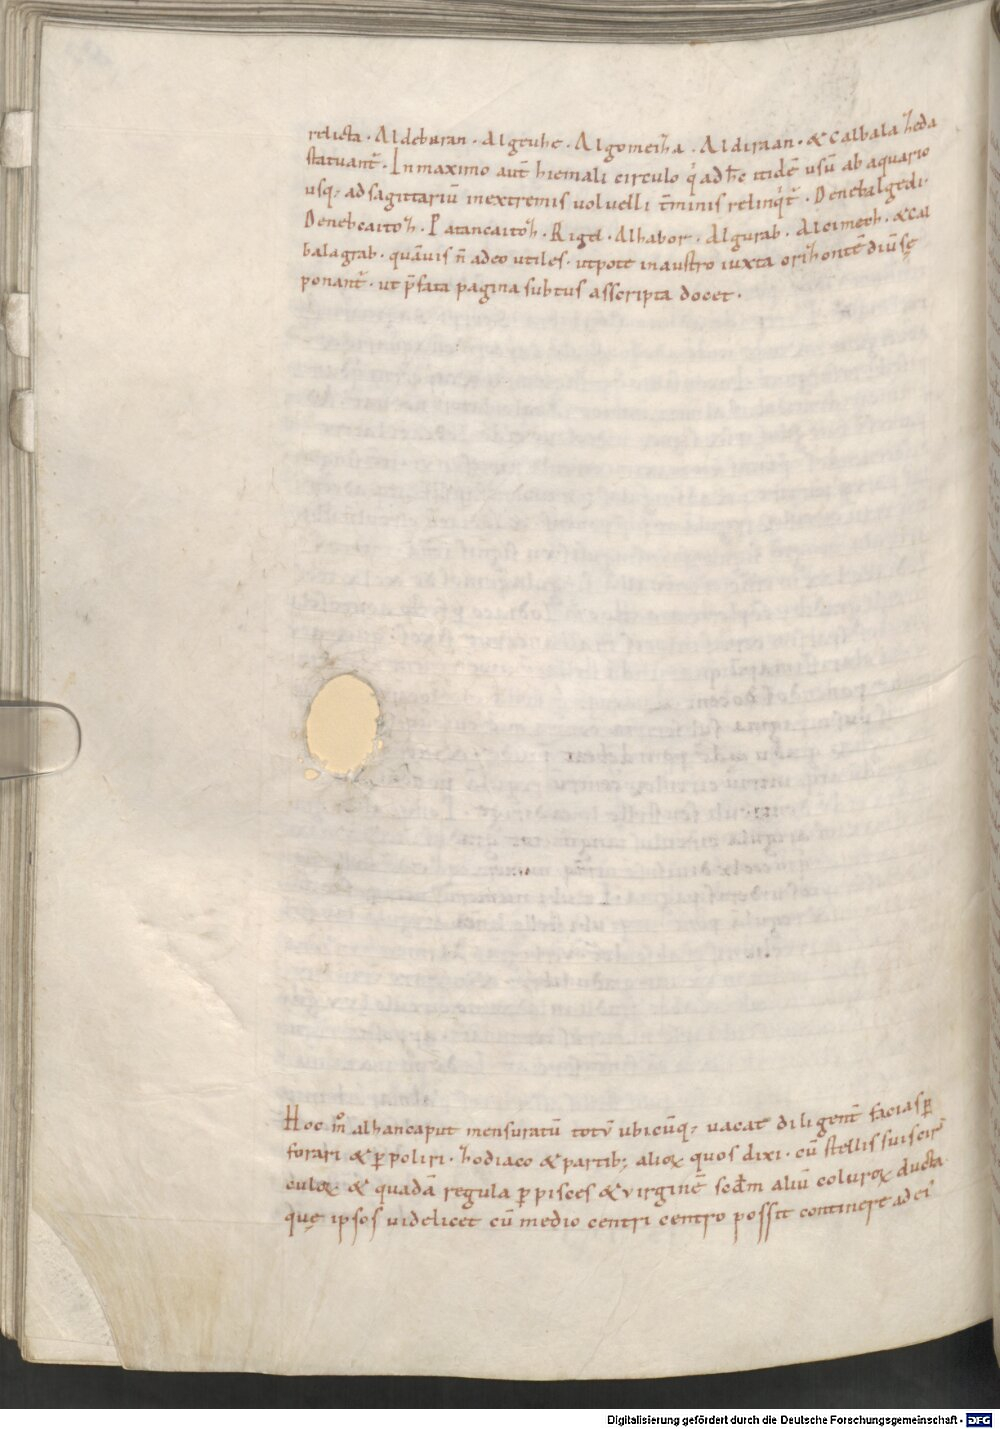 relicta · Aldebaran · Algeuhe · Algomeiha · Aldiraan · & Calbalaheda
statuant᷑ · In maximo aut̄ hiemali circulo q͛ ad hc̄ itidē usū ab aquario
usq; ad sagittariū in extremis voluelli t̄minis relinqt᷑ · Denebalgedi ·
Denebcaitoh · Patancaitoh · Rigel · Alhabor · Algurab · Alcimech · & Cal
balagrab · quāuis n̄ adeo utiles · utpote in austro iuxta orihontē diūsę
ponant᷑ · ut p̄fata pagina subtus asscripta docet ·
Hoc m̊ alhancaput mensuratū totū ubicūq; uacat diligent̄ facias ꝑ
forari & ꝑpoliri · hodiaco & partib; alioꝝ quos dixi · cū stellis suis cir
culoꝝ · & quadā regula ꝑ pisces & virginē scd̄m aliū coluroꝝ ducta ·
quę ipsos uidelicet cū medio centri centro possit continere ad ei᷒
Digitalisierung gefördert durch die Deutsche Forschungsgemeinschaft - DFG